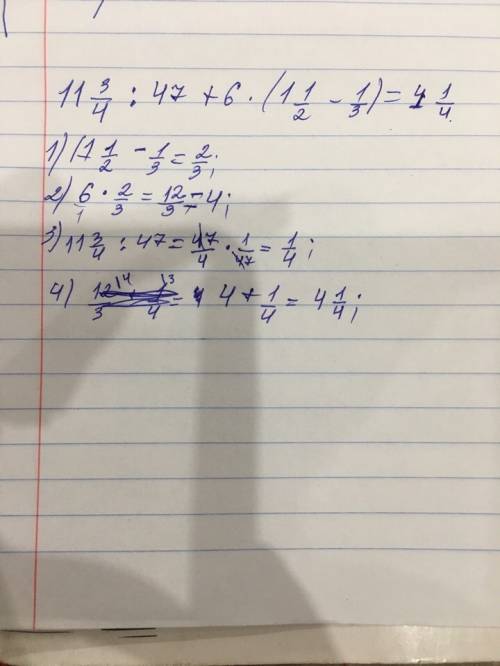 11 3/4 : 47 + 6 · (1 1/2 - 1/3) = 4 1/4.
1) 1 1/2 - 1/3 = 2/3;
2) 6/1 · 2/3 = 12/3 = 4;
3) 11 3/4 : 47 = 47/4 · 1/47 = 1/4;
4) 4 + 1/4 = 4 1/4;